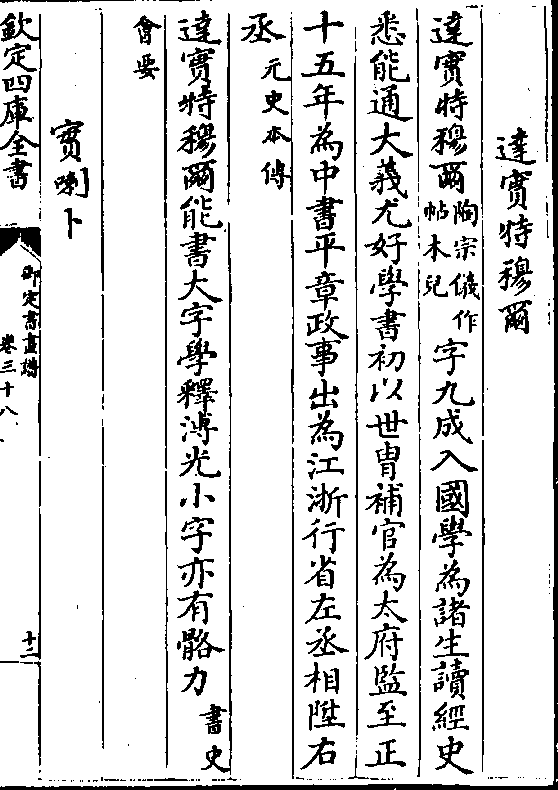 達實特穆爾
達實特穆爾陶宗儀作帖木兒字九成入國學為諸生讀經史
悉能通大義尤好學書初以世胄補官為太府監至正
十五年為中書平章政事出為江浙行省左丞相陞右
丞元史本傳
達實特穆爾能書大字學釋溥光小字亦有骼力書史
會要
實喇卜
欽定四庫全書
御定書畫譜
卷三十八
十二